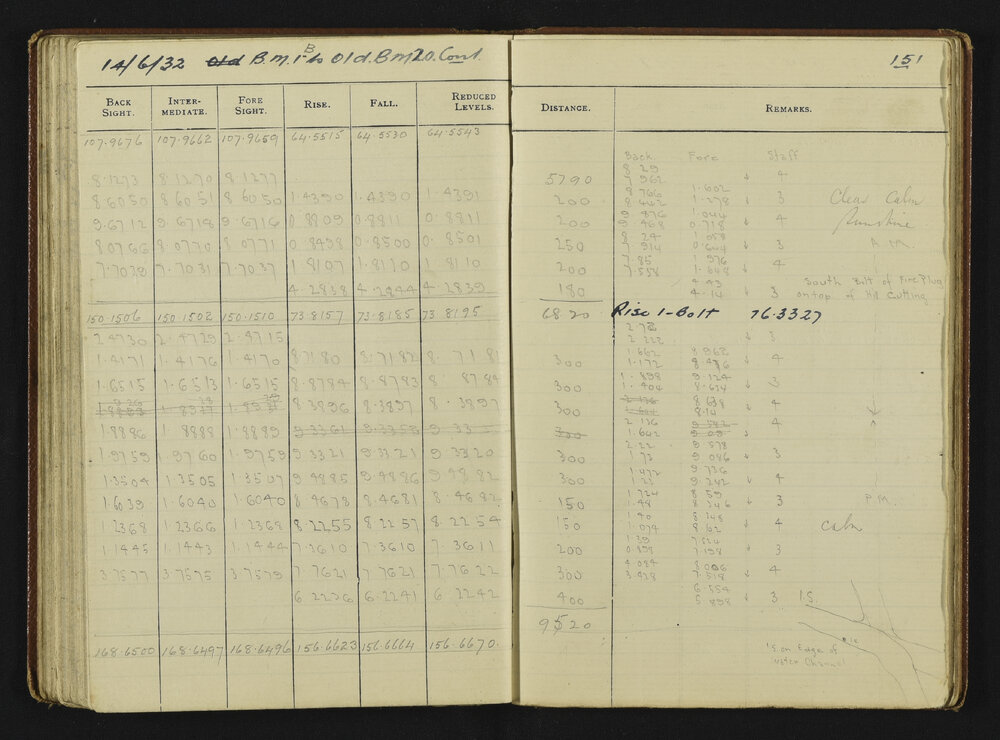 14/6/32 Old B.M.1B to Old.B.M 20. Cont.
151
BACK SIGHT. INTER-MEDIATE. FORE SIGHT. RISE. FALL. REDUCED LEVELS. DISTANCE. REMARKS.
107.9676 107.9662 107.9659 64.5515 64.5530 64.5543
Back Fore Staff
8.29
8.1273 8.1270 8.1277 5790 7.962 4
8.6050 8.6051 8.6050 1.4390 1.4390 1.4391 200 8.766 1.602 3 Clear Calm
8.442 1.278
9.6712 9.6718 9.6716 0.8809 0.8811 0.8811 200 9.876 1.044 4 Sunshine
9.468 0.718
8.0766 8.0770 8.0771 0.8498 0.8500 0.8501 250 8.24 1.058 3 A.M.
7.914 0.644
7.7039 7.7031 7.7037 1.8107 1.8110 1.8110 200 7.85 1.976 4
7.558 1.648
4.2838 4.2844 4.2839 180 4.43 3 South Bolt of Fire Plug
4.14 on top of Hill Cutting
150.1506 150.1502 150.1510 73.8157 73.8185 73.8195 6820 Rise 1-Bolt 76.3327
2.4730 2.4729 2.4715 2.722 3
1.4171 1.4176 1.4170 8.7180 8.7182 8.7181 300 1.662 8.962 4
1.172 8.476
1.6515 1.6513 1.6515 8.8784 8.8783 8.8784 300 1.898 9.124 3
1.404 8.614
8.3896 8.3897 8.3897 300 8.638 4
8.14
1.8886 1.8888 1.8889 9.3361 9.3358 9.33 300 2.136 4
1.642
1.9759 1.9760 1.9759 9.3321 9.3321 9.3320 300 2.22 9.578 3
1.73 9.086
1.3504 1.3505 1.3507 9.4885 9.4886 9.4882 300 1.472 9.736 4
1.23 9.242
1.6039 1.6040 1.6040 8.4678 8.4681 8.4682 150 1.724 8.59 3 P.M.
1.48 8.346
1.2368 1.2366 1.2368 8.2255 8.2257 8.2254 150 1.40 4 calm
1.074
1.1445 1.1443 1.1444 7.3610 7.3610 7.3611 200 1.39 7.524 3
0.898 7.198
3.7577 3.7575 3.7579 7.7621 7.7621 7.7622 300 4.084 8.006 4
3.428 7.518
6.2226 6.2241 6.2242 400 6.554 3 I.S.
5.898
9520
168.6500 168.6497 168.6496 156.6623 156.6664 156.6670.
I.S. on Edge of
Water Channel